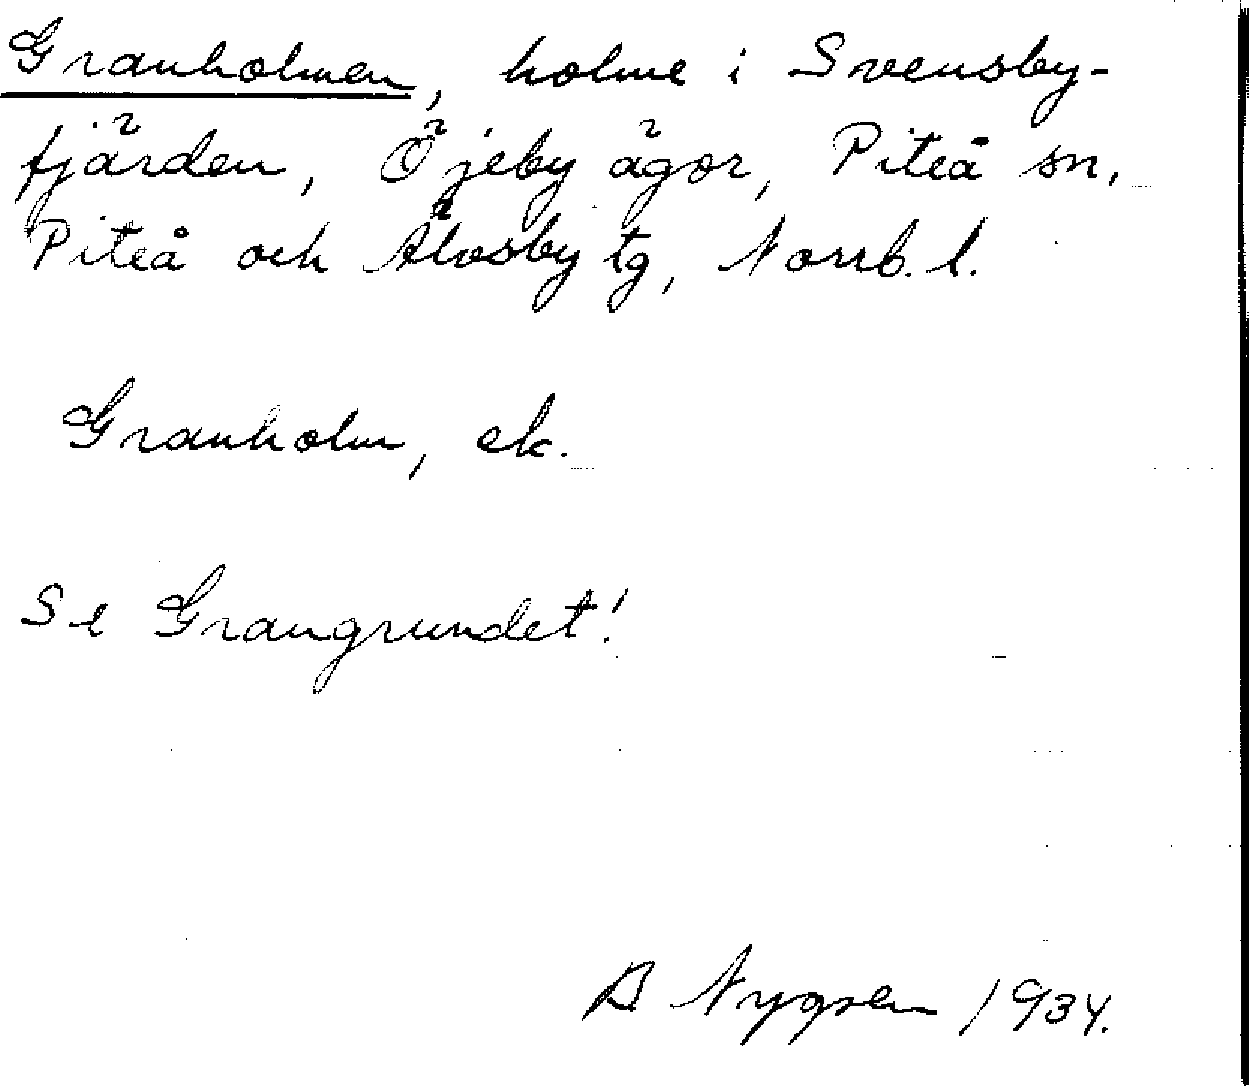 Granholmen, holme i Svensby-
fjärden, Öjeby ägor, Piteå sn,
Piteå och Älvsby tg, Norrb. l.
Granholm, ek.
Se Grangrundet!
B Nygren 1934.